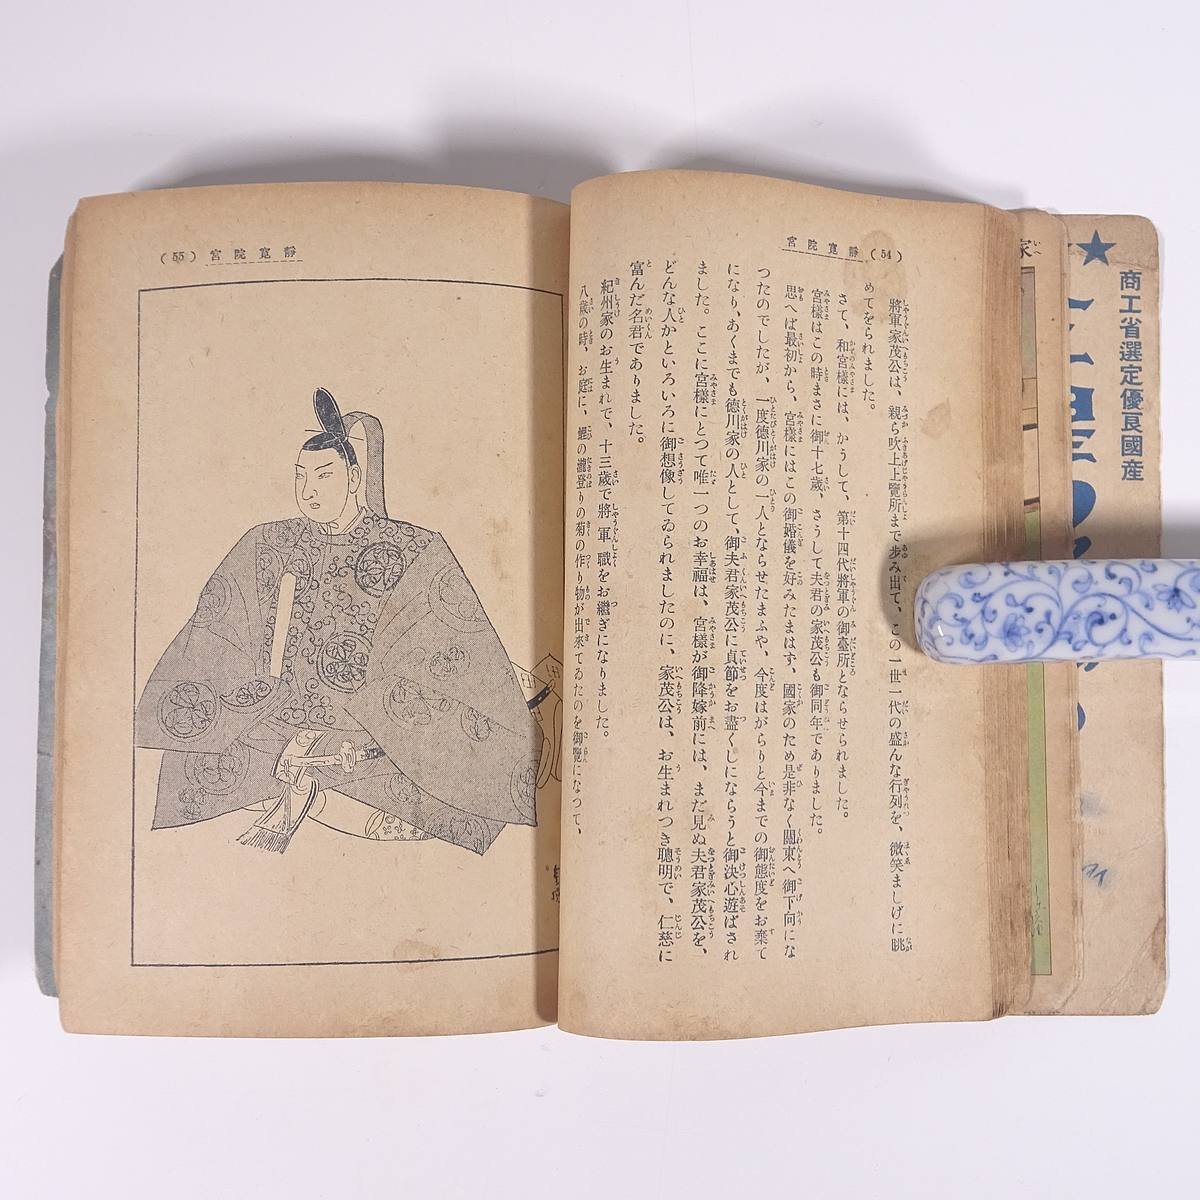 靜寬院宮 (54)
將軍家茂公は、親ら吹上上覽所まで步み出て、この一世一代の盛んな行列を、微笑ましげに眺
めてをられました。
さて、和宮樣には、かうして、第十四代將軍の御臺所とならせられました。
宮樣はこの時まさに御十七歲、さうして夫君の家茂公も御同年でありました。
思へば最初から、宮樣にはこの御婚儀を好みたまはず、國家のため是非なく關東へ御下向にな
つたのでしたが、一度德川家の一人とならせたまふや、今度はがらりと今までの御態度をお棄て
になり、あくまでも德川家の人として、御夫君家茂公に貞節をお盡くしにならうと御決心遊ばされ
ました。ここに宮樣にとつて唯一つのお幸福は、宮樣が御降嫁前には、まだ見ぬ夫君家茂公を、
どんな人かといろいろに御想像してゐられましたのに、家茂公は、お生まれつき聰明で、仁慈に
富んだ名君でありました。
紀州家のお生まれで、十三歲で將軍職をお繼ぎになりました。
八歲の時、お庭に、鯉の瀧登りの菊の作り物が出來てゐたのを御覽になつて、
(55) 靜寬院宮
商工省選定優良國産
家